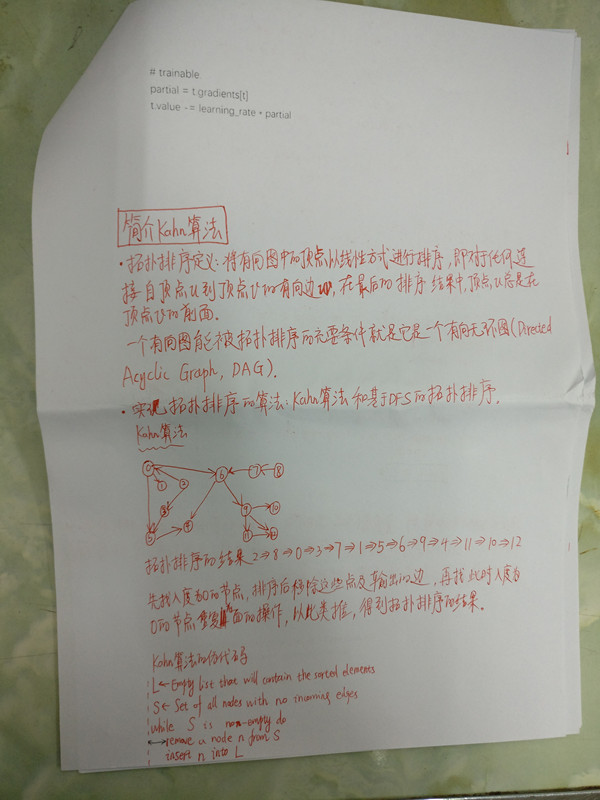 # trainable
partial = t.gradients[t]
t.value -= learning_rate * partial
简介Kahn算法
·拓扑排序定义:将有向图中的顶点以线性方式进行排序,即对于任何连
接自顶点u到顶点v的有向边uv,在最后的排序结果中,顶点u总是在
顶点v的前面.
一个有向图能被拓扑排序的充要条件就是它是一个有向无环图(Directed
Acyclic Graph, DAG).
·实现拓扑排序的算法:Kahn算法和基于DFS的拓扑排序.
Kahn算法
0 6 7 8
1 2
3 9 10
5 4 11 12
拓扑排序的结果2→8→0→3→7→1→5→6→9→4→11→10→12
先找入度为0的节点,排序后移除这些点及输出的边,再找此时入度为
0的节点重复的操作,以此类推,得到拓扑排序的结果.
Kahn算法的伪代码
L←Empty list that will contain the sorted elements
S← Set of all nodes with no incoming edges
while S is non-empty do
remove a node n from S
insert n into L